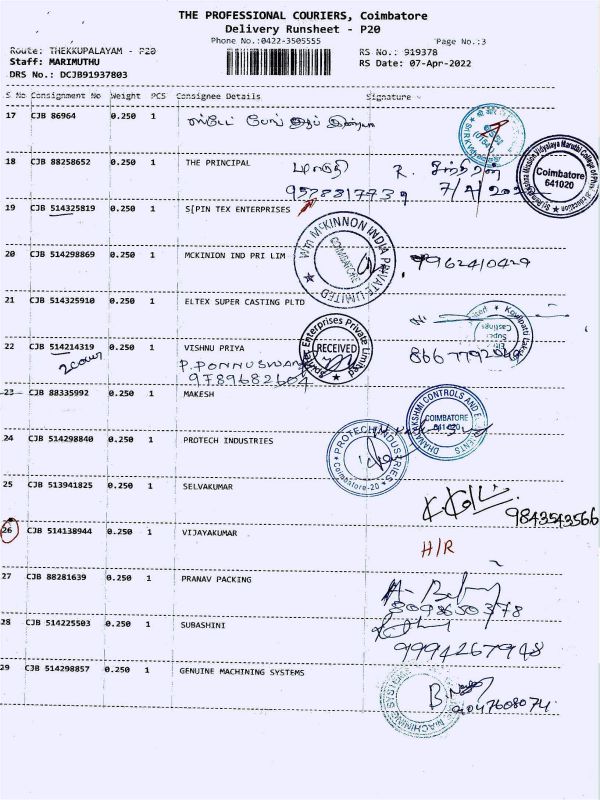 THE PROFESSIONAL COURIERS, Coimbatore
Delivery Runsheet - P20
Phone No.:0422-3505555
Page No.:3
Route: THEKKUPALAYAM - P20
RS No.: 919378
Staff: MARIMUTHU
RS Date: 07-Apr-2022
DRS No.: DCJB91937803
S No Consignment No Weight PCS Consignee Details Signature
17 CJB 86964 0.250 1
18 CJB 88258652 0.250 1 THE PRINCIPAL
மாருதி R.
7/4/
Coimbatore
641020
19 CJB 514325819 0.250 1 S[PIN TEX ENTERPRISES
Wm McKINNON INDIA PRIVATE LIMITED
COIMBATORE
20 CJB 514298869 0.250 1 MCKINION IND PRI LIM
9962410429
21 CJB 514325910 0.250 1 ELTEX SUPER CASTING PLTD
Super
Castings
Enterprises Private Limited
RECEIVED
22 CJB 514214319 0.250 1 VISHNU PRIYA
2 cover
P. PONNUSWAMY
9789682604
8667792069
23 CJB 88335992 0.250 1 MAKESH
DHANALAKSHMI CONTROLS AND
COIMBATORE
641020
24 CJB 514298840 0.250 1 PROTECH INDUSTRIES
PROTECH INDUSTRIES
Coimbatore-20
25 CJB 513941825 0.250 1 SELVAKUMAR
9843543566
26 CJB 514138944 0.250 1 VIJAYAKUMAR
H/R
27 CJB 88281639 0.250 1 PRANAV PACKING
8098650378
28 CJB 514225503 0.250 1 SUBASHINI
9994267948
29 CJB 514298857 0.250 1 GENUINE MACHINING SYSTEMS
MACHINING SYSTEMS
9047608074